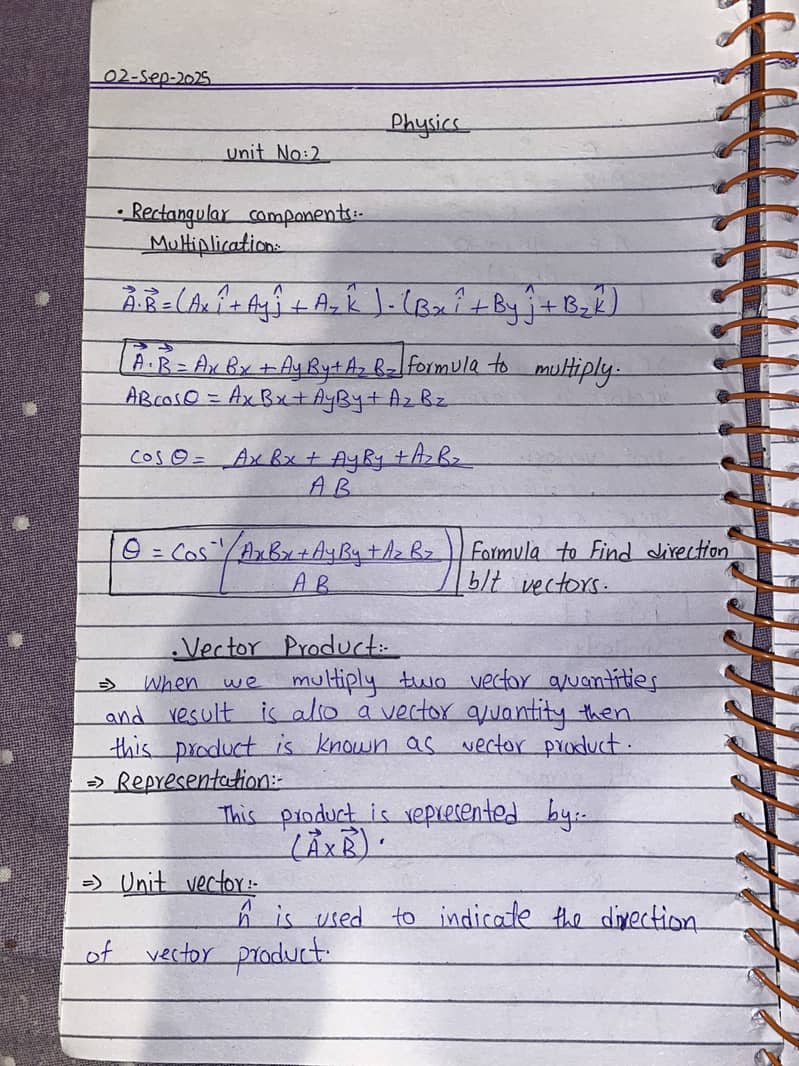 02-Sep-2025
Physics
Unit No:2
• Rectangular components:-
Multiplication:-
A⃗.B⃗ = (Ax î + Ay ĵ + Az k̂ ) . (Bx î + By ĵ + Bz k̂)
A⃗.B⃗ = Ax Bx + Ay By + Az Bz formula to multiply.
ABcosθ = Ax Bx + AyBy + Az Bz
cos θ = Ax Bx + AyBy + Az Bz
A B
θ = Cos⁻¹ (AxBx + AyBy + Az Bz) Formula to Find direction
A B b/t vectors.
• Vector Product:-
⇒ When we multiply two vector quantities
and result is also a vector quantity then
this product is known as vector product.
⇒ Representation:-
This product is represented by:-
(A⃗ x B⃗) .
⇒ Unit vector:-
n̂ is used to indicate the direction
of vector product.